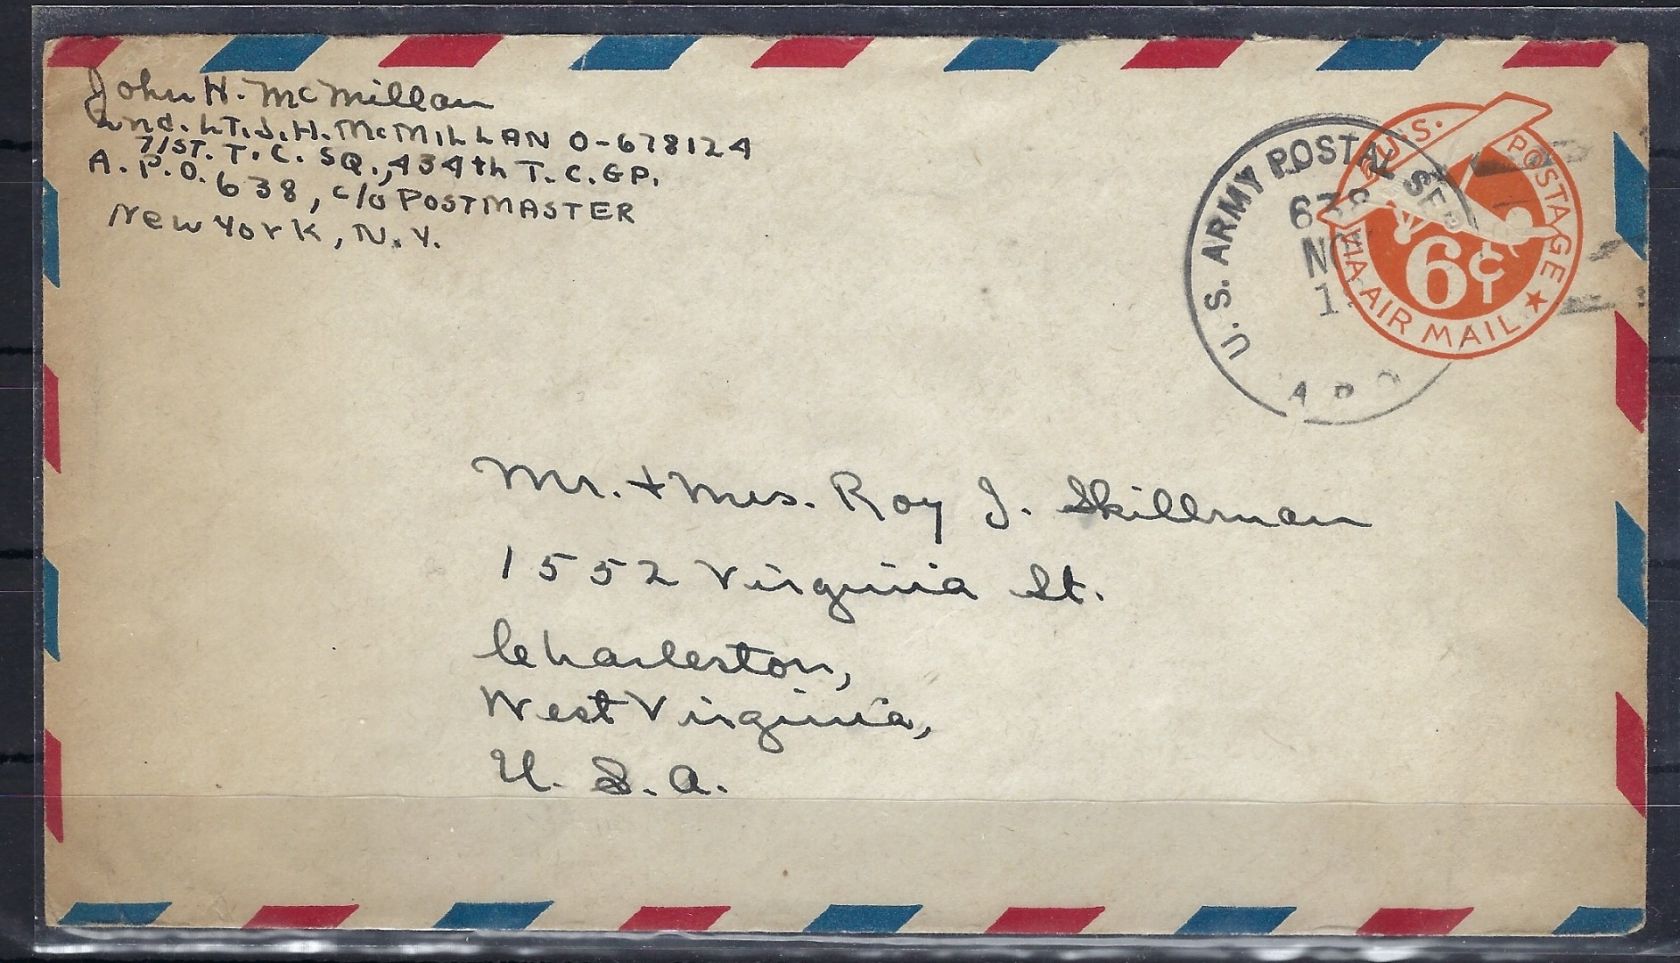 John H. McMillan
2nd. LT. J. H. McMILLAN O-678124
71ST. T. C. SQ., 434th T. C. GP.
A. P. O. 638, c/o POSTMASTER
New York, N. Y.
U. S. ARMY POSTAL
638
A P O
U.S. POSTAGE
6¢
VIA AIR MAIL
Mr. + Mrs. Roy J. Skillman
1552 Virginia St.
Charleston,
West Virginia,
U. S. A.